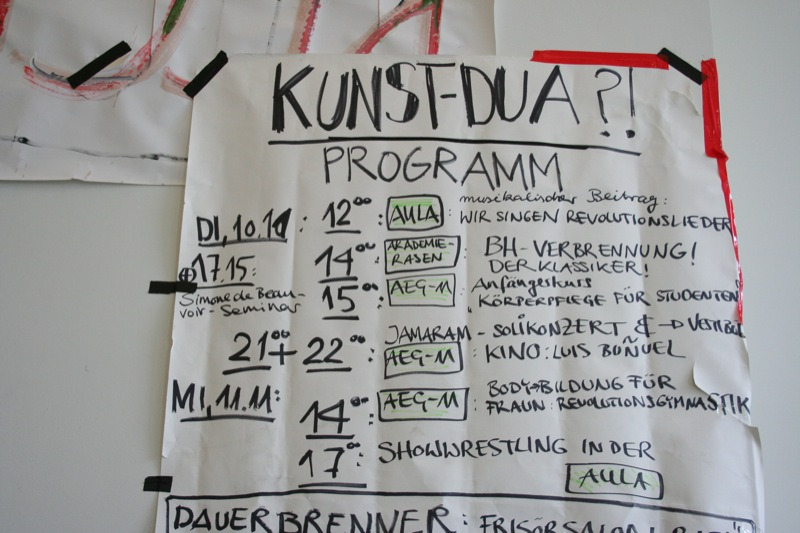 KUNST-DUA?!
PROGRAMM
DI, 10.11: 12⁰⁰: AULA: musikalischer Beitrag:
WIR SINGEN REVOLUTIONSLIEDER
14⁰⁰: AKADEMIE-RASEN: BH-VERBRENNUNG!
DER KLASSIKER!
⊕17.15:
Simone de Beau-
voir-Seminar
15⁰⁰: AEG-M: Anfängerkurs
"KÖRPERPFLEGE FÜR STUDENTEN"
21⁰⁰+22⁰⁰: JAMARAM - SOLIKONZERT & → VESTIBÜL
AEG-M: KINO: LUIS BUÑUEL
MI, 11.11: 14⁰⁰: AEG-M: BODY→BILDUNG FÜR
FRAUN: REVOLUTIONSGYMNASTIK
17⁰⁰: SHOWWRESTLING IN DER
AULA
DAUERBRENNER: FRISÖRSALON